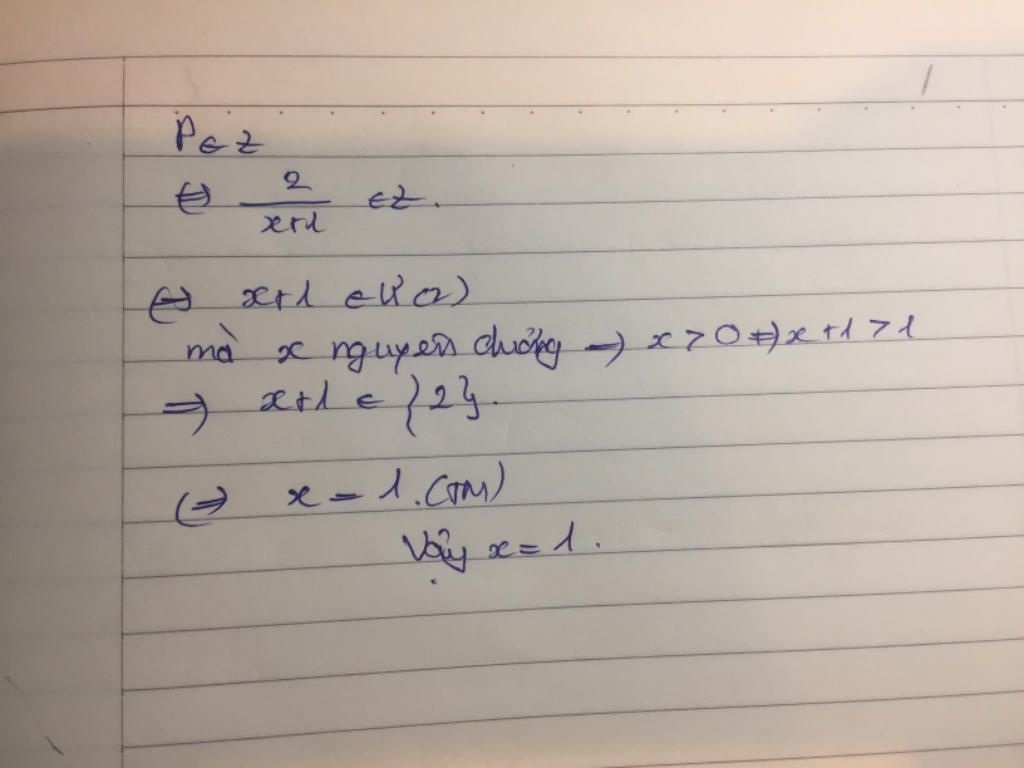 P ∈ Z
⇔ 2/(x+1) ∈ Z.
⇔ x+1 ∈ Ư(2)
mà x nguyên dương → x > 0 ⇔ x+1 > 1
⇒ x+1 ∈ {2}.
⇔ x = 1. (TM)
Vậy x = 1.